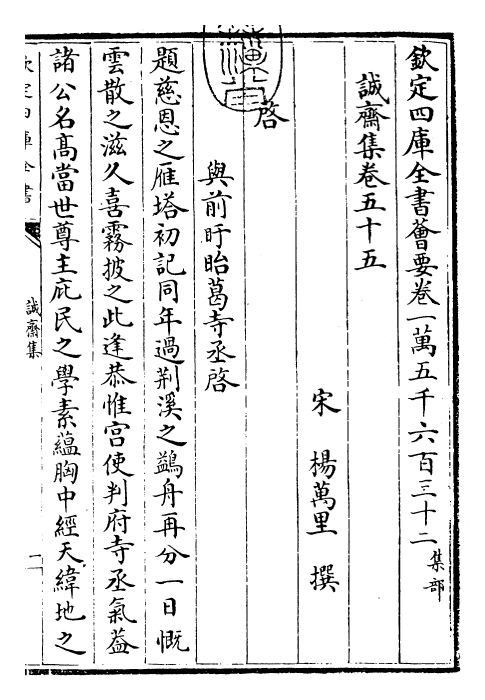 欽定四庫全書薈要卷一萬五千六百三十二 集部
誠齋集卷五十五
宋 楊萬里 撰
啓
與前盱眙葛寺丞啓
題慈恩之雁塔初記同年過荆溪之鷁舟再分一日慨
雲散之滋久喜霧披之此逢恭惟宫使判府寺丞氣葢
諸公名髙當世尊主庇民之學素藴胸中經天緯地之
誠齋集
一